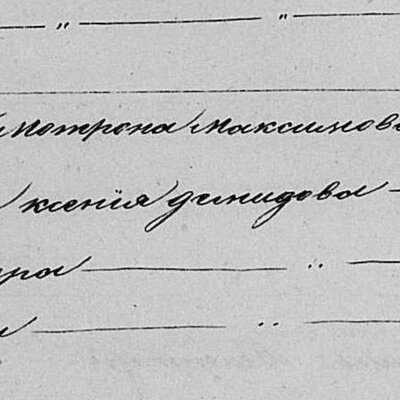 Мотрона Максимова
ксенія димидова